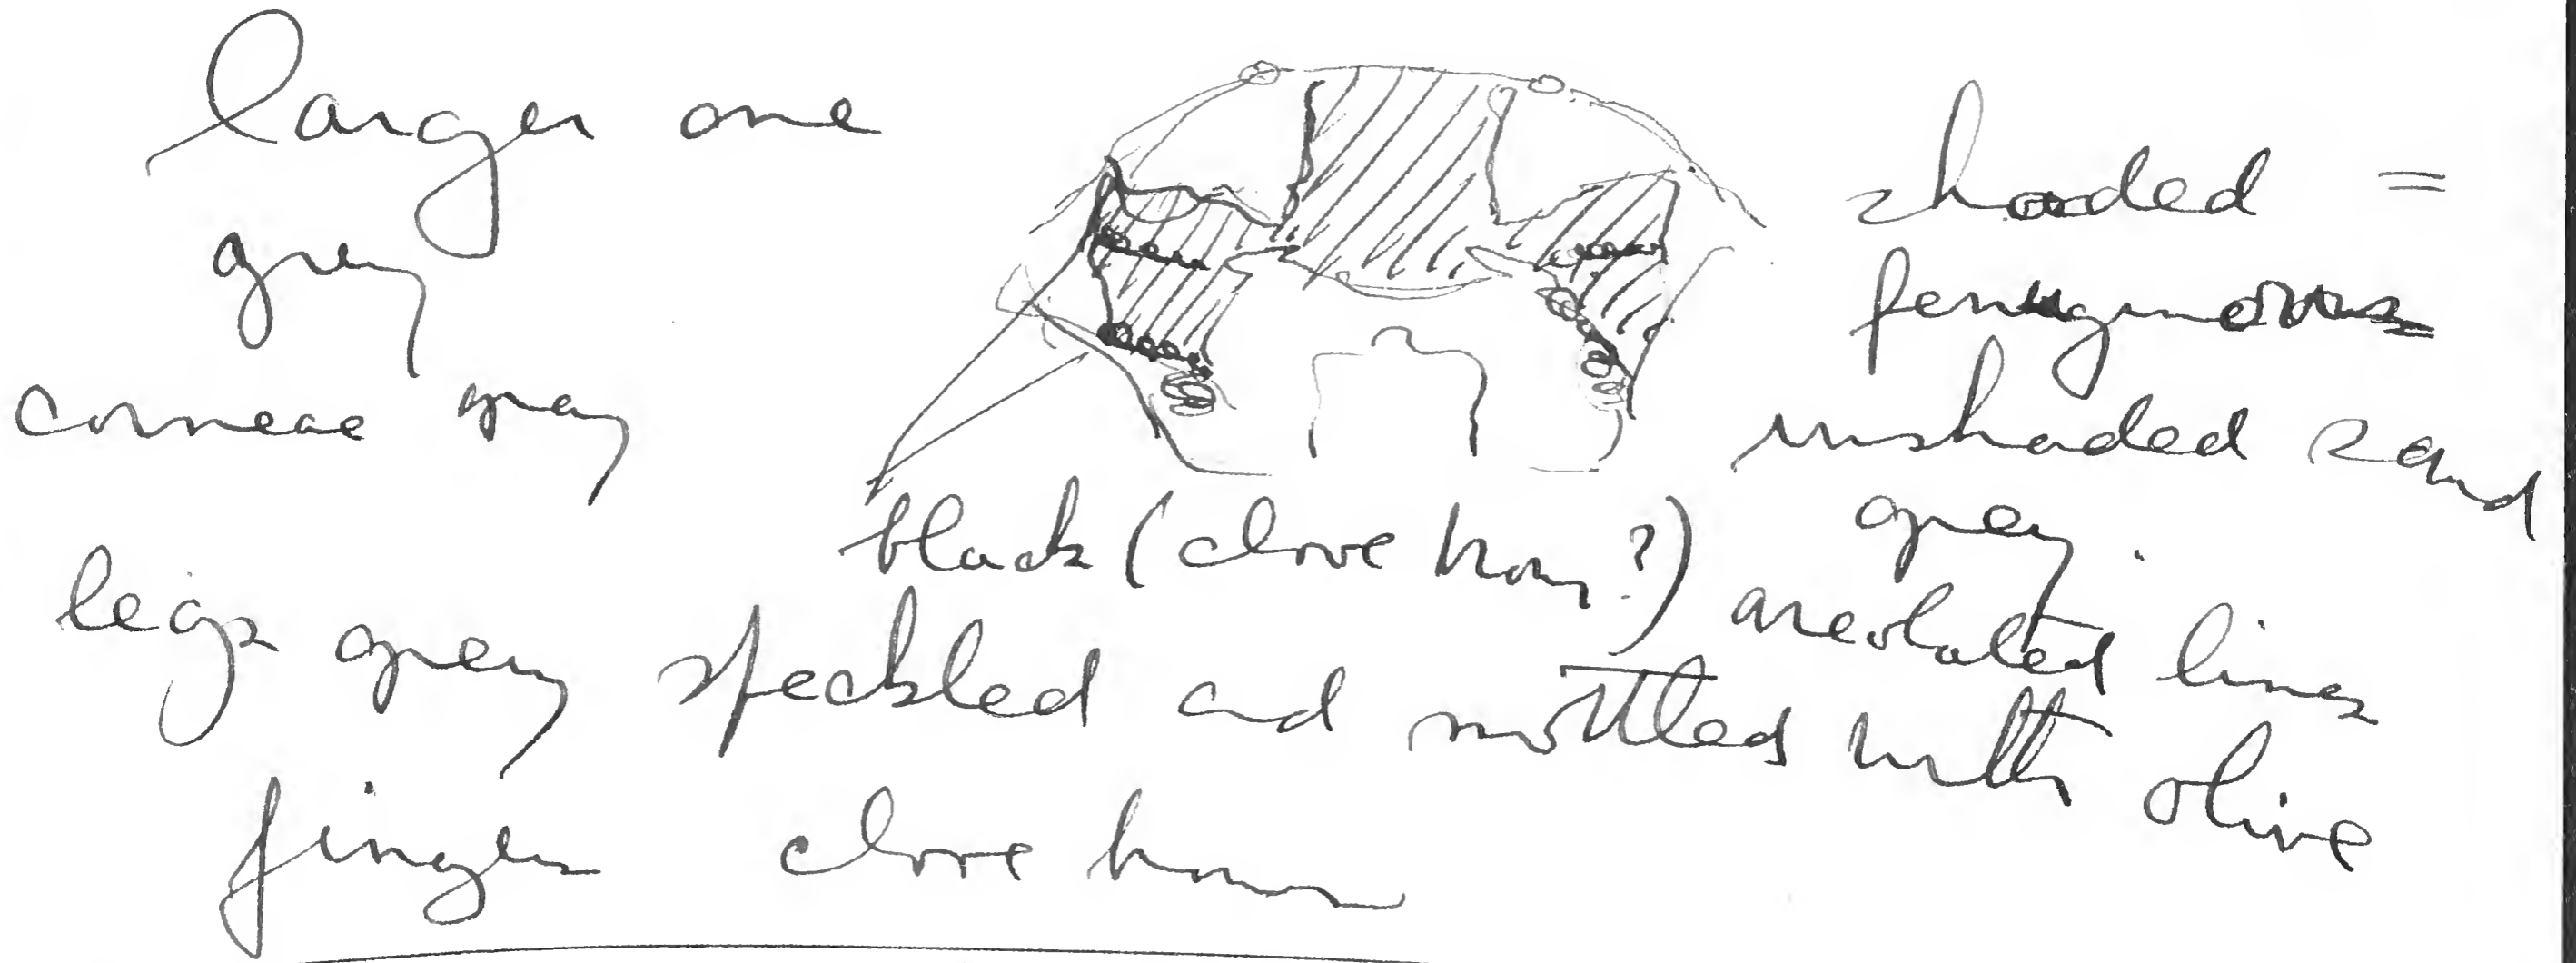 larger one
grey
corneae grey
shaded =
ferruginous
unshaded sand
grey.
black (clove brown?) areolated lines
legs grey speckled and mottled with olive
fingers clove brown